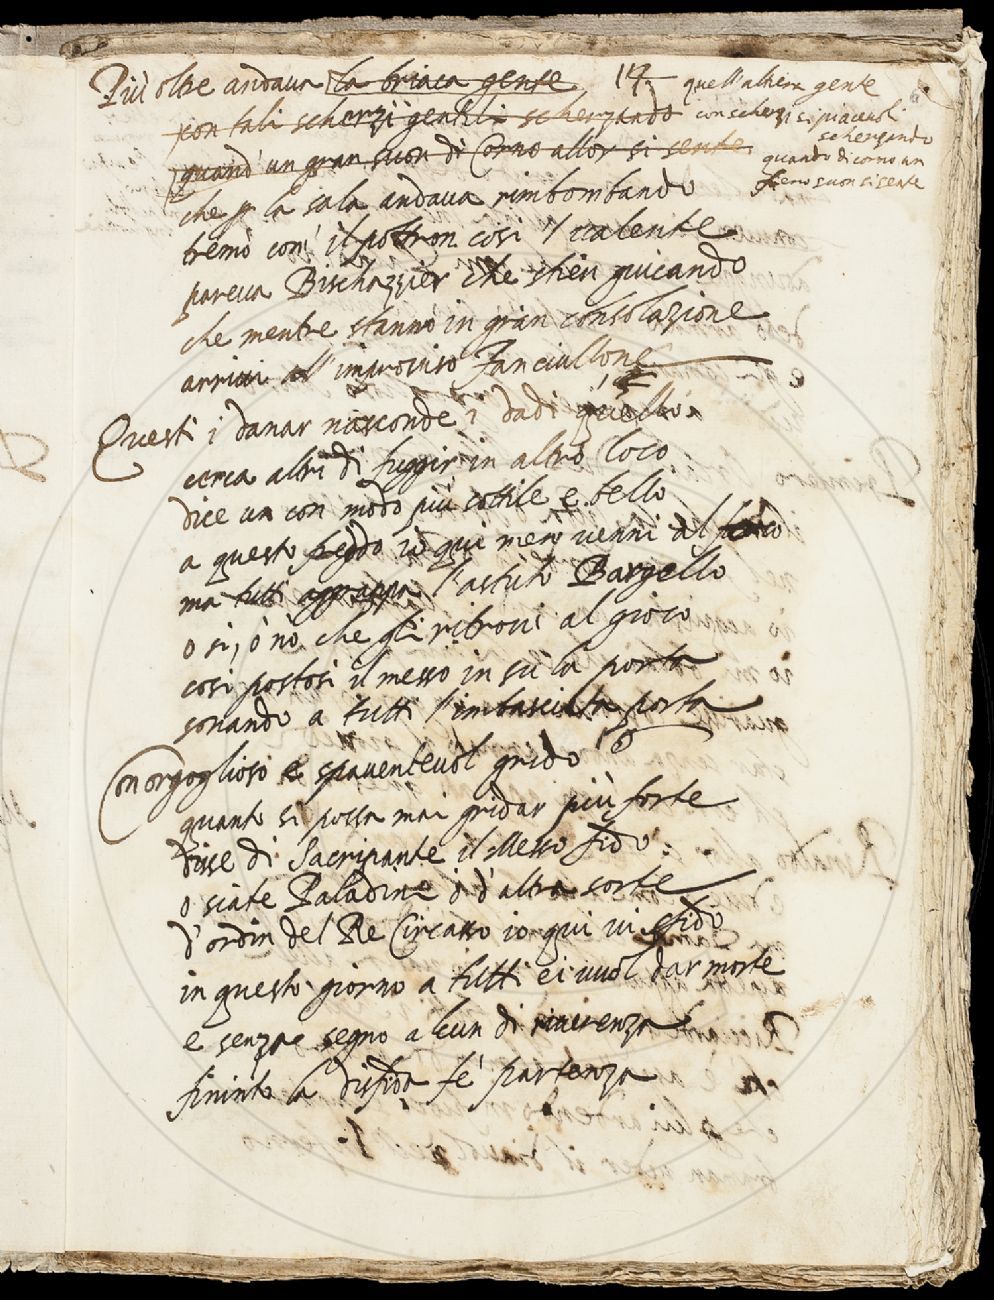 Più oltre andava la briaca gente 14. quell'altera gente
con tali scherzi gentili scherzando con scherzi si piacevoli
scherzando
quand' un gran suon di Corno allor si sente quando di corno un
fiero suon si sente
che p la sala andava rimbombando
tremò con' il poltron così l' valente
pareva Bischazzier che stien giuicando
che mentre stanno in gran consolazione
arrivi all' improviso Fanciullone
Questi i danar nasconde i dadi quello
cerca altri di fuggir in altro loco
dice un con modo più sottile e bello
a questo freddo io qui mero venni al foco
ma tutti aggrappa l'astuto Bargello
o si, ò nò che gli ritrovi al gioco
così postosi il messo in sù la porta
sonando a tutti l'imbasciata porta
Con orgoglioso e spaventevol grido
quanto si possa mai gridar più forte
disse di Sacripante il Messo fido
o siate Paladini ò d'altra sorte
d'ordin del Re Circasso io qui vi sfido
in questo giorno a tutti ei vuol dar morte
e senza segno alcun di riverenza
fininto la disfida fe' partenza